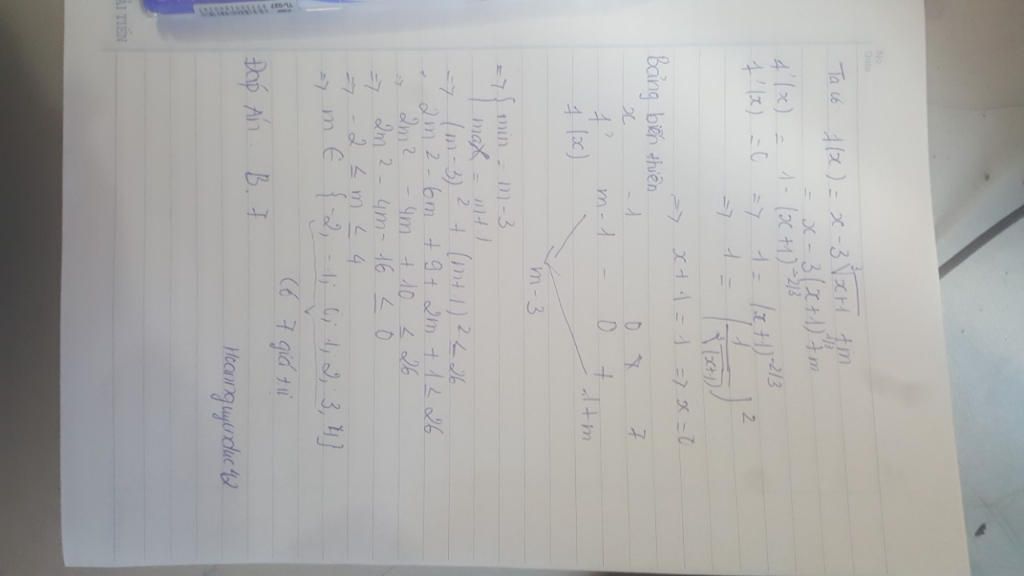 No.
Date
Ta có f(x) = x - 3∛x+1 + m
= x - 3(x+1)^1/3 + m
f'(x) = 1 - (x+1)^-2/3
f'(x) = 0 => 1 = (x+1)^-2/3
=> 1 = (1/∛(x+1))^2
=> x + 1 = 1 => x = 0
Bảng biến thiên
x -1 0 7
f' - 0 +
f(x) m-1 1+m
m-3
=> { min = m-3
max = m+1
=> (m-3)^2 + (m+1)^2 ≤ 26
2m^2 - 6m + 9 + 2m + 1 ≤ 26
2m^2 - 4m + 10 ≤ 26
=> 2m^2 - 4m - 16 ≤ 0
=> -2 ≤ m ≤ 4
=> m ∈ {-2, -1; 0; 1, 2; 3, 4}
Có 7 giá trị
Đáp Án B. 7